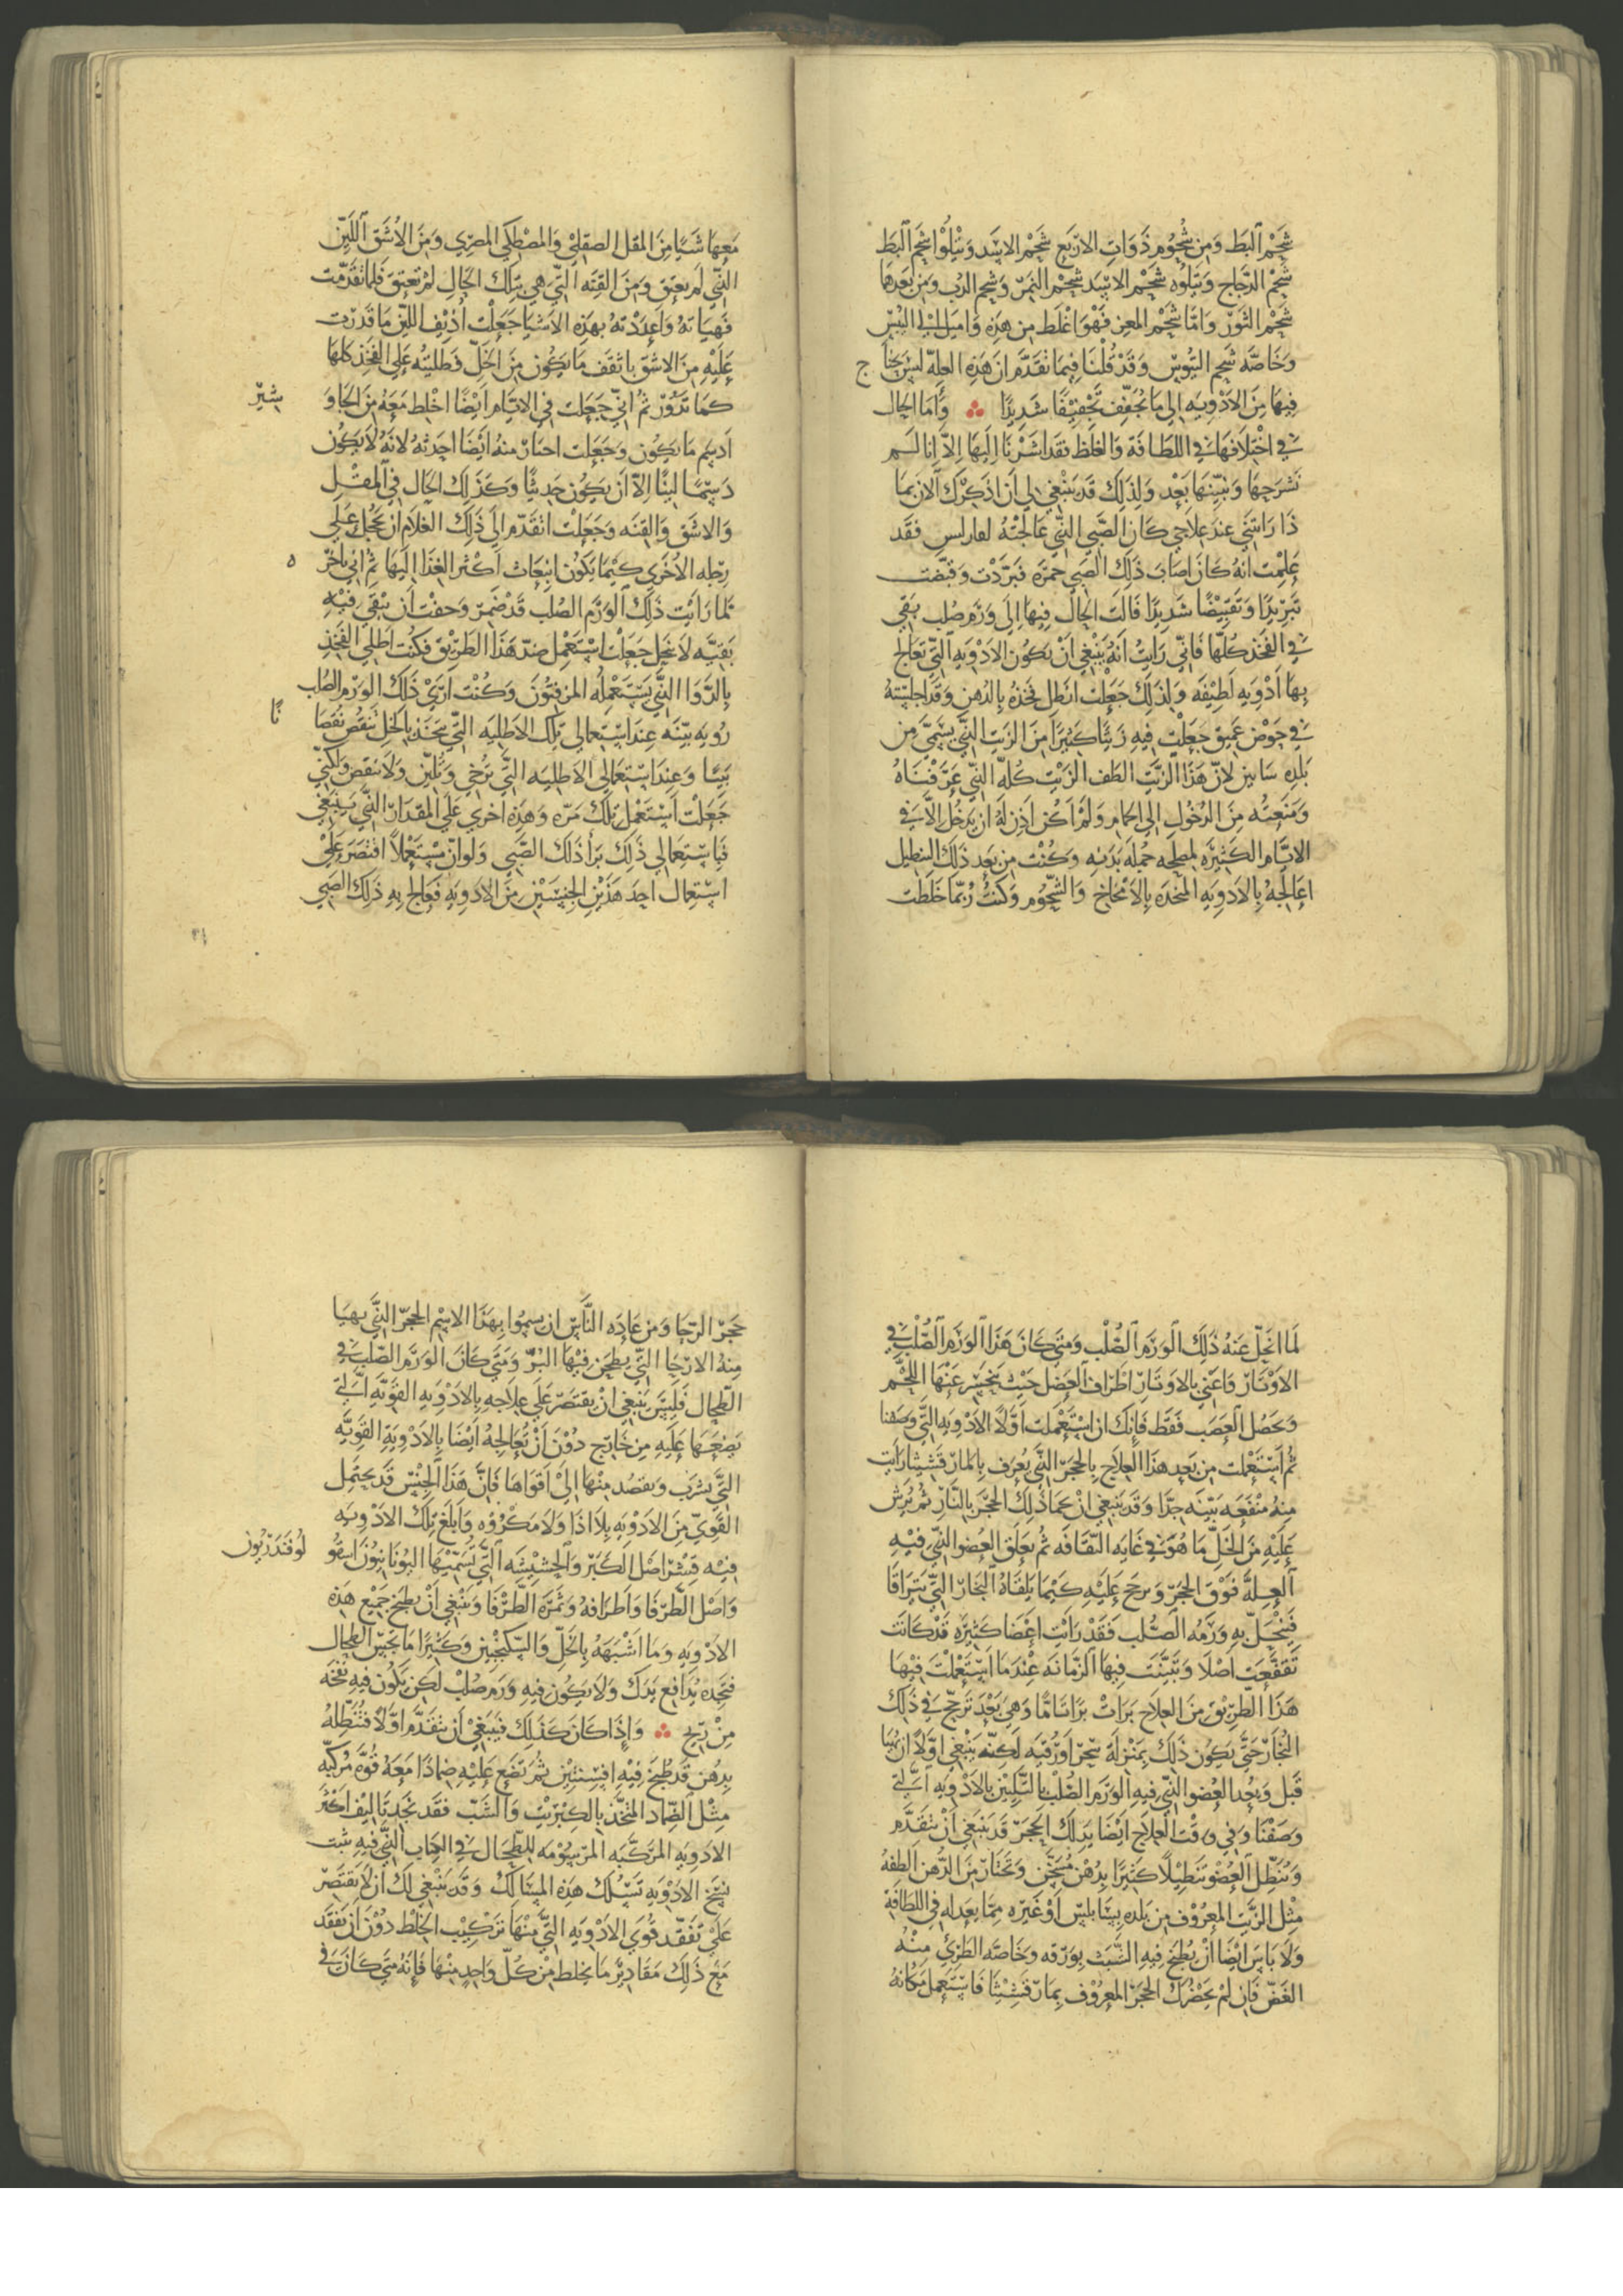 شَحْم البَط وَمِن شُحُوم ذَوَاتِ الاربَع شَحْم الاسَد وَيتْلُوا شَحم البَط
شَحْم الدّجَاج وَيَتلُوه شَحْم الاسَد شَحْم النَمرّ وَشَحم الدُب وَمِن بَعدهَا
شَحْم الثَورّ وَامّا شَحْم المعِز فَهْوَ اغْلَط مِن هَذِهِ وَامَيل الي اليُبْس
وَخَاصّه شَحم التيُوس وَقَدْ قُلْنَا فِيمَا تقَدّمَ ان هَذِهِ العِلهّ ليسَ يحتَاج
فِيهَا مِنَ الادْوِيَه الي مَا يُجَفّف تَجْفِيْفًا شَدِيدًا وَأمَا الحَال
في اخْتلَافهَا في اللطَافَة وَالغلَظ فقَد اشَرْنَا اِلَيهَا اِلَّا انا لَم
نَشرَحهَا وَنُبَيّنهَا بَعْد وَلِذَلِكَ قَد يَنْبَغي لي اَن اذكُرَكَ الان بمَا
ذَا رَايتَني عِندَ عِلَاجي كَان الصَّبي الذّي عَالجتُهُ لفَاريس فقَد
عَلِمْت انَهُ كَانَ اصَابَ ذَلِكَ الصَبي حُمْرَه فَبَرّدَت وَقبّضَت
تَبرِيدًا وَتَقبِيضًا شَدِيدًا فَالَت الحَال فِيهَا اِلَى وَرَم صُلب بَقي
في الفَخذ كُلّهَا فَانّي رَايتُ انَهُ يَنْبَغي اَنْ يكُون الادْوِيَه التّي تعَالج
بهَا ادْوِيه لَطِيْفَه وَلذَلِكَ جَعَلت انطل فخذهُ بِالدُهن وَقَد اجلسْتهُ
في حَوْض عَميق جَعَلْت فيهِ زَيتًا كثيرًا مِنَ الزَيت الذّي يسَمّى مِن
بَلده سَابين لانّ هَذَا الزَيت الطَف الزَيت كُلهّ الذّي عَرّفنَاهُ
وَمنَعْتُه مِنَ الدُخُول الي الحمَام وَلَمْ اَكُن اذِن لهُ ان يَدخُل الاّ في
الايّام الكَثِيرَه لمصلحه جُملَه بَدَنِه وَكنْت مِن بَعد ذَلِكَ التنطيل
اعَالجهُ بِالادوِيهِ المتخذه بِالامْخَاخ وَالشُّحُوم وَكنْتُ رُبّمَا خَلطت
مَعهَا شَيًا مِنَ المقل الصقلبْي وَالمصْطَكي المصّري وَمِنَ الاشَق اللَّيّن
الذّي لَم يعتق وَمنَ القِنّه التّي هِي بتلكَ الحَال لمْ تعتق فَلما تقَدّمت
فَهَيأتهُ وَاعْدَدْتهُ بهَذِهِ الاَشْيا جَعَلْت اُذِيْف اللّيّن مَا قَدَرْت
عَلَيْهِ مِنَ الاشَق باثقَف مَا يكُون مِنَ الخَلّ وَطليتُه عَلي الفَخذ كلهَا
كمَا تَدُوْر ثمُ انّي جَعَلت في الايّام ايْضًا اخْلط مَعَهُ مِنَ الجَاوَ
شيّر
اَدسَم مَا يكُون وَجَعَلت اختَار منهُ ايضَا احدَثهُ لانَهُ لَا يَكُون
دَسِمًا لينًا الّا ان يَكُون حَدِيثًا وَكَذَلِكَ الحَال في المقْل
وَالاشَق وَالقِنَه وَجَعَلْت اتقَدّم الَى ذَلِكَ الغلَام ان يحجل عَلى
رِجْله الاُخْري كيْمَا يَكُوْن انبعَاث اكثر الغِذا الَيهَا ثمُ اني بآخرّ
ه
لمَا رَايت ذَلِكَ الوَرَم الصُلب قَدْ ضَمرّ وَخفْت اَن يبْقَي فِيْهِ
بَقيّه لَا تنحَل جَعَلت اسْتَعْمِل ضِدّ هَذَا الطَرِيْق فكُنْت اطلي الفَخذِ
بِالدَّوَا الذَّي يَسَتعْملُه المزفتُونَ وَكُنْت ارَيْ ذَلِكَ الوَرَم الصُلب
رُويَه بَيّنَه عِندَ اسْتعمالي تِلكَ الاطلِيه التّي تتخَذ بالخل يَنقُص نُقصَا
نًا
بَيّنا وَعِندَ اسْتعمَالي الاطلِيه التّي تُرخي وَتُليّن وَلَا ينقَص وَلكِنّي
جَعَلْت اَسْتَعْمِل تِلكَ مَرّه وَهَذِهِ اُخري عَلَي المقدَارّ الذّي يَنبَغي
فَبِاسْتِعمَالي ذَلِكَ بَرَأ ذَلكَ الصَّبي وَلَو انّ مسْتَعْملًا اقتصَرَ عَلَيْ
اسْتعمَال احَد هَذَيْن الجِنْسَيْن مِنَ الادوِيهِ فعَالج بِهِ ذَلِكَ الصَبي
لَمَا انحَلّ عَنهُ ذَلِكَ الوَرَم الصُّلْب وَمَتَى كَانَ هَذَا الوَرَم الصُّلْب في
الاوْتَارّ وَاعْني بالاوتَارّ اطرَاف العضَل حَيث ينحسر عَنْهَا اللّحْم
وَتحصُل العَصَب فَقَط فَانكَ ان اسْتَعْملت اَوّلًا الادْوِيَه التّي وَصفنا
ثُمّ اسْتَعْملت مِن بَعد هذَا العلَاج بالحجَرّ الذّي يُعرَف بِالمارّقشيثا رَايت
مِنهُ منْفَعَه بَيّنَه جِدًا وَقد يَنبَغي ان يحمَا ذَلِكَ الحجَر بالنّار ثمُ يُرش
عَلَيْهِ مِنَ الخَلّ مَا هُوَ في غَايَه الثقَافَه ثمُ يعَلق العضو الذّي فيْهِ
العِلّة فَوْقَ الحجَرّ وَيرجح عَلَيْهِ كيْمَا يَلقَاهُ البخَارّ الذّي يَترَاقَا
فَينْحَلّ بهِ وَرَمُه الصُّلب فَقَدْ رَايت اعْضَا كثيْرَه قَدْ كَانَت
تَقفّعَت اصْلَا وَتبيَّنَت فيهَا الزّمَانَه عِنْدَمَا اسْتَعْملت فيْهَا
هَذَا الطَرِيْق مِنَ العلَاج بَرَات بَرًا تَامًّا وَهيَ بَعْد تَرجّح في ذَلِكَ
البُخَارّ حَتّى يكُون ذَلِكَ بِمَنْزلَة سِحْر اوْرُقيَه لَكِنّه يَنْبَغي اوّلًا ان يُهيَا
قَبل وَيُعد العضو الذّي فيهِ الوَرَم الصُّلْب بالتَّليِين بالادْوِيهِ الّتي
وصَفْنَا وَفي وقت العِلَاج ايضَا بِذَلكَ الحجَرّ قَد يَنبَغي اَنْ يتقَدّم
وَيُنَطّل العُضو تَنطيْلًا كثيرًا بِدُهْن مُسَخَّن وَتختَارّ مِنَ الدّهن الطفهُ
مِثْل الزَّيت المعرُوف مِن بَلدة بِيَنا بليسّ اوْ غَيْره مِمّا يعدِله في اللطَافَة
وَلَا بَاسَ ايْضَا اَنْ يُطبَخ فِيهِ الشّبَت بِوَرَقه وَخَاصّه الطَرِيّ مِنْه
الغَضّ فَان لَمْ يَحْضُرْكَ الحجَرّ المعْرُوْف بِمَارّقشِيْثَا فَاسْتَعمل مَكَانَهُ
حَجَرّ الرّحَا وَمِن عَادَه النَّاسّ ان يسموا بِهَذَا الاسْم الحَجرّ الذَّي يهيَا
مِنهُ الارْحَا التّي يطحَن فِيْهَا البُرّ وَمَتَي كَانَ الوَرَم الصّلب في
الطحَال فَليسَ يَنْبَغي اَنْ يقتَصَرّ عَلَي علَاجه بِالادْوِيهِ القَويَّهِ الّتي
يضعَها عَلَيهِ مِن خَارِّج دُوْنَ اَنْ تعَالِجهُ ايْضَا بالادْوِيَه القَوِيّه
التّي يشرَب وَيقصد مِنْهَا الَىْ اقْوَاهَا فَانَّ هَذَا الجِنْسّ قَد يحتَمل
القَويّ مِنَ الادْوِيَه بِلَا اذَا وَلَا مَكرُوْه وَابلَغ تِلكَ الادْوِيه
فيْه قشْر اصْل الكَبَرّ وَالحشيشَه التّي تسَمّيهَا اليُونَانيُونَ اسقُو
لوُفَندَرّيُون
وَاصْل الطّرّفَا وَاطرَافه وَثَمَرَه الطَّرّفَا وَينْبَغي اَنْ يطبَخ جَميْع هَذه
الادْوِيَه وَمَا اشْبَهَهُ بِالخَلّ وَالسّكنجُبِين وَكَثيرًا مَا يجسّ الطحَال
فتَجده يُدَافع يَدَكَ وَلَا يَكُون فِيهِ وَرَم صُلب لَكن يَكُون فيهِ نُفخَه
مِنْ رِيح وَإِذَا كَانَ كَذَلِكَ فَيَنبَغيْ اَن يتقَدَّم اوَّلًا فتُنَطّلهُ
بِدُهن قَد طُبخَ فِيْهِ افسِنتين ثُم تضَع عَليْهِ ضمَادًا مَعَهُ قُوّه مُرَكّبَه
مثْل الضّمَاد المتّخَذ بالكبْريْت وَالشَبّ فقَد تجَد تَاليْف اكْثر
الادوِيهِ المرَكّبَه المرّسُوْمَه للطحَال في الكِتَاب الذَّي فيْهِ ثبت
نسَخ الادْوِيهِ تَسْلك هَذِهِ المسَالك وَقَد يَنبَغي لَكَ ان لَا تقتَصَرّ
عَلَى تَفَقّد قُوَي الادْوِيه التّي مِنْهَا تَرْكيْب الخَلْط دُوْنَ اَن تفقّد
مَعَ ذَلِكَ مَقَادِيرّ مَا يخلط مِن كُلّ وَاحد مِنْهَا فَانَهُ مَتي كَان في